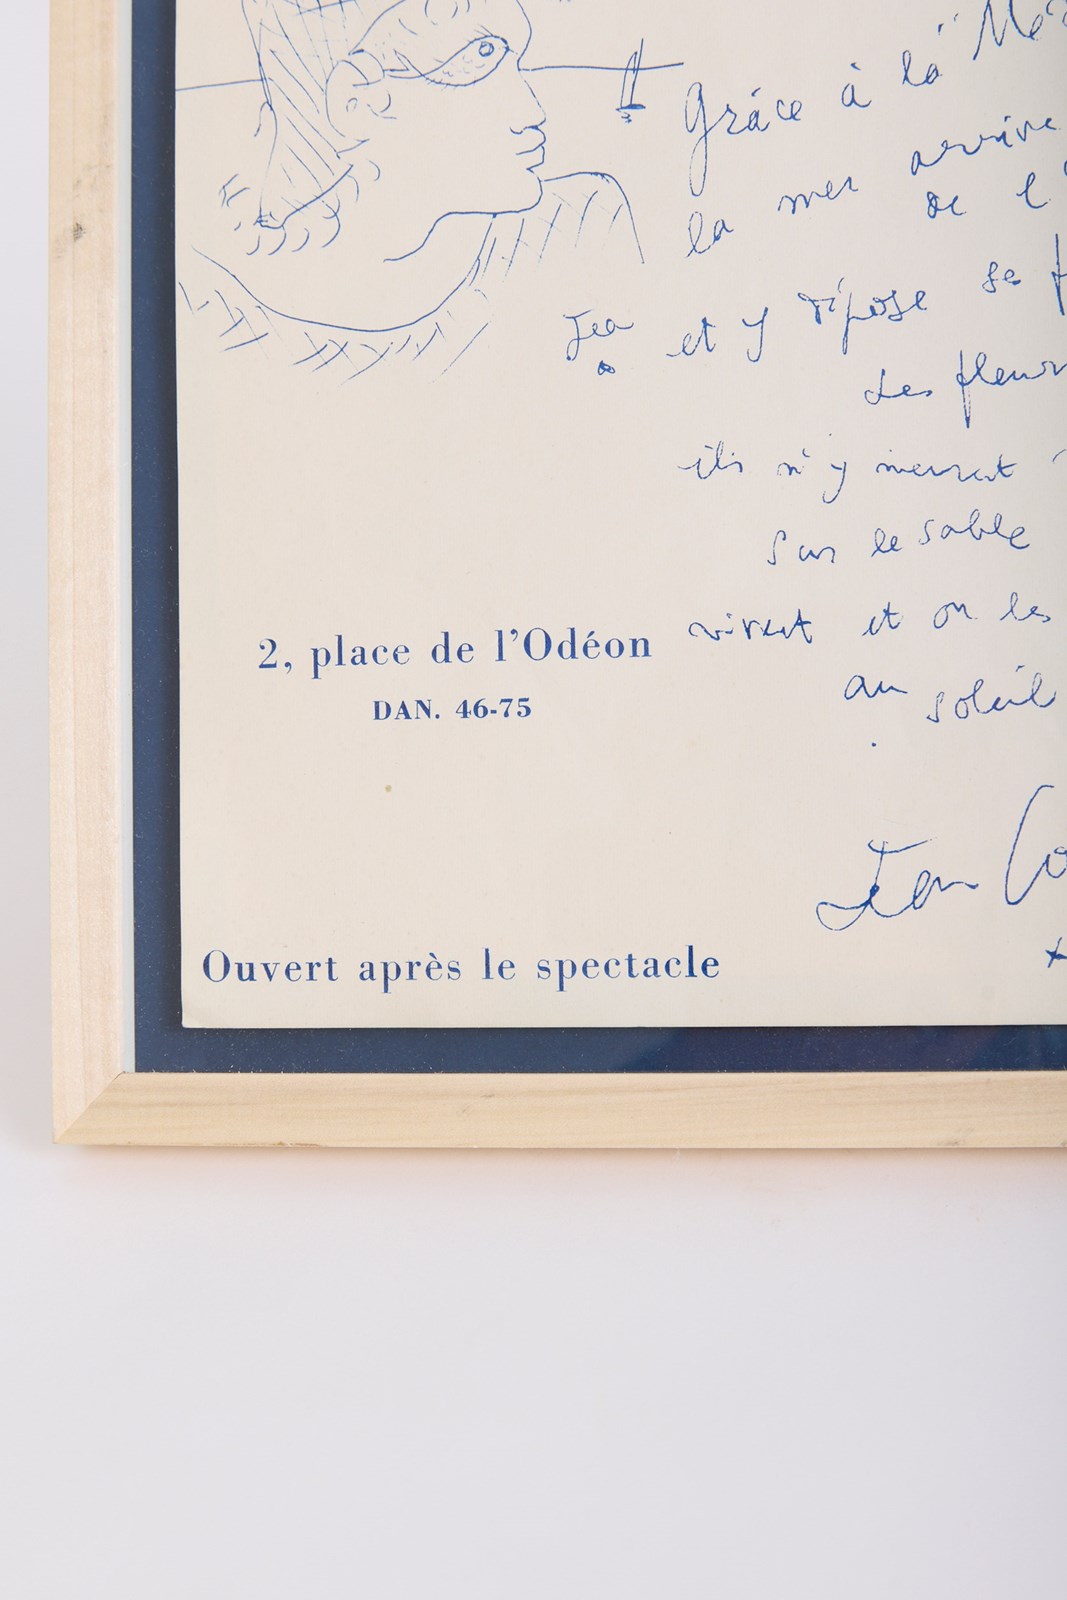 Grâce à la "Mé
la mer arrive
de l'
et y dépose ses f
Jean
Les fleurs
ils n'y meurent
Sur le sable
vivent et on les
au soleil
2, place de l'Odéon
DAN. 46-75
Jean Co
Ouvert après le spectacle